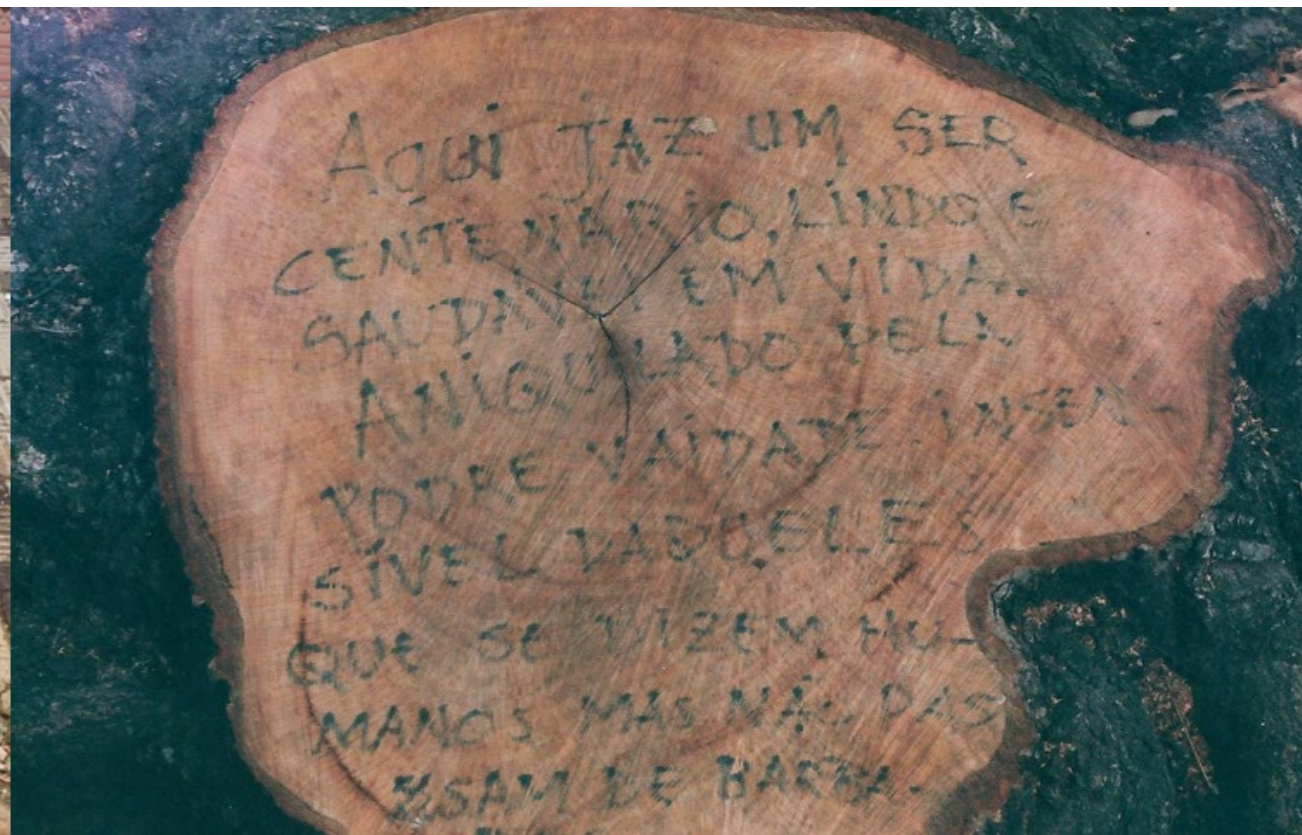 AQUI JAZ UM SER
CENTENÁRIO, LINDO E
SAUDÁVEL EM VIDA.
ANIQUILADO PELA
PODRE VAIDADE INSEN-
SÍVEL DAQUELES
QUE SE DIZEM HU-
MANOS MAS NÃO PAS
SAM DE BARBA-